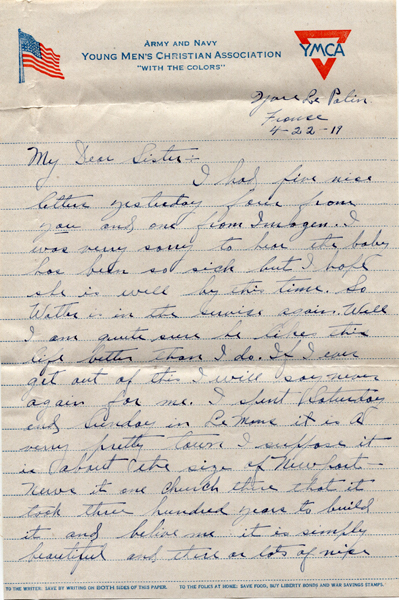 ARMY AND NAVY
YOUNG MEN'S CHRISTIAN ASSOCIATION
"WITH THE COLORS"
YMCA
France
4-22-19
My Dear Sister:-
I had five nice
letters yesterday four from
you and one from Imogen. I
was very sorry to hear the baby
has been so sick but I hope
she is well by this time. So
Walter is in the service again. Well
I am quite sure he likes this
life better than I do. If I ever
get out of this I will say never
again for me. I spent Saturday
and Sunday in Le Mans it is a
very pretty town I suppose it
is about the size of Newport-
News it one church there that it
took three hundred years to build
it and belive me it is simply
beautiful and there or lots of nice
TO THE WRITER: SAVE BY WRITING ON BOTH SIDES OF THIS PAPER. TO THE FOLKS AT HOME: SAVE FOOD, BUY LIBERTY BONDS AND WAR SAVINGS STAMPS.